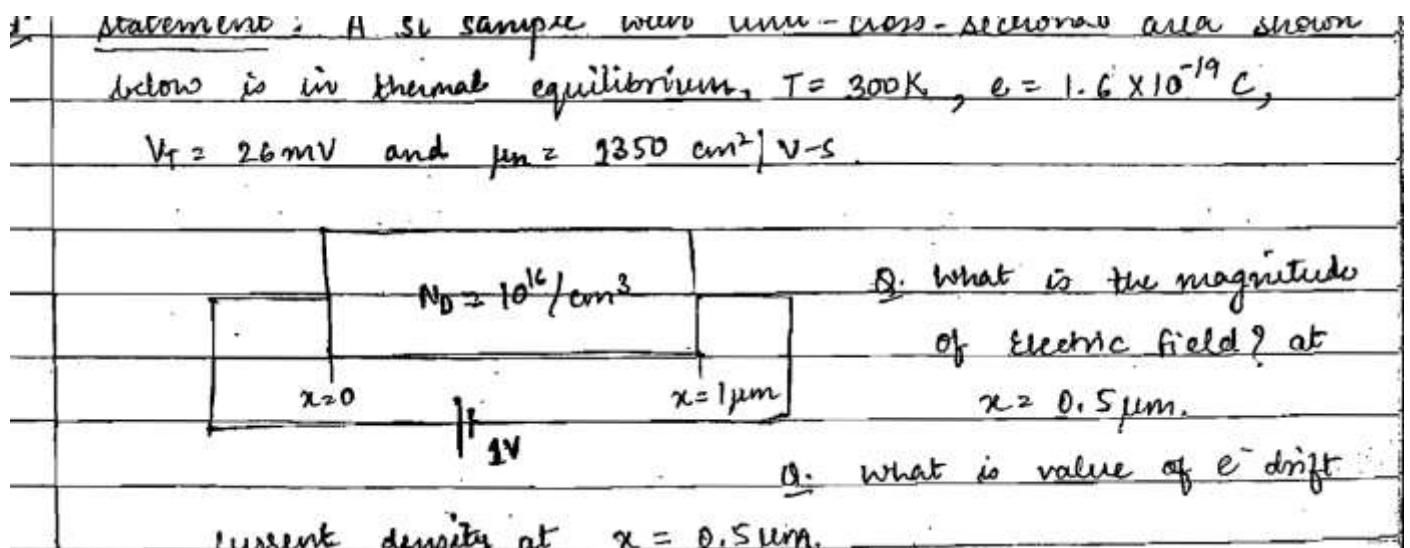 Statement: A Si sample with unit-cross-sectional area shown
below is in thermal equilibrium, T = 300K, e = 1.6 X 10⁻¹⁹ C,
V_T = 26mV and μn = 1350 cm² / V-S.
N_D = 10¹⁶/cm³
Q. What is the magnitude
of Electric field? at
x=0
x=1μm
x = 0.5μm.
1V
Q. What is value of e⁻ drift
current density at x = 0.5μm.